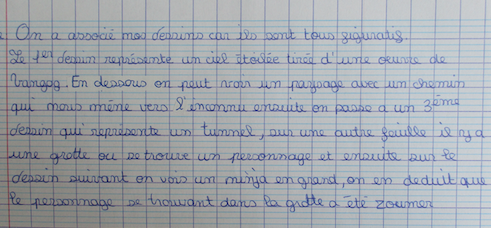 On a associé mes dessins car ils sont tous figuratifs.
Le 1er dessin représente un ciel étoilée tirée d'une œuvre de
Vangog. En dessous on peut voir un paysage avec un chemin
qui nous mène vers l'inconnu ensuite on passe a un 3ème
dessin qui représente un tunnel, sur une autre feuille il y a
une grotte ou se trouve un personnage et ensuite sur le
dessin suivant on vois un ninja en grand, on en deduit que
le personnage se trouvant dans la grotte a été zoumer